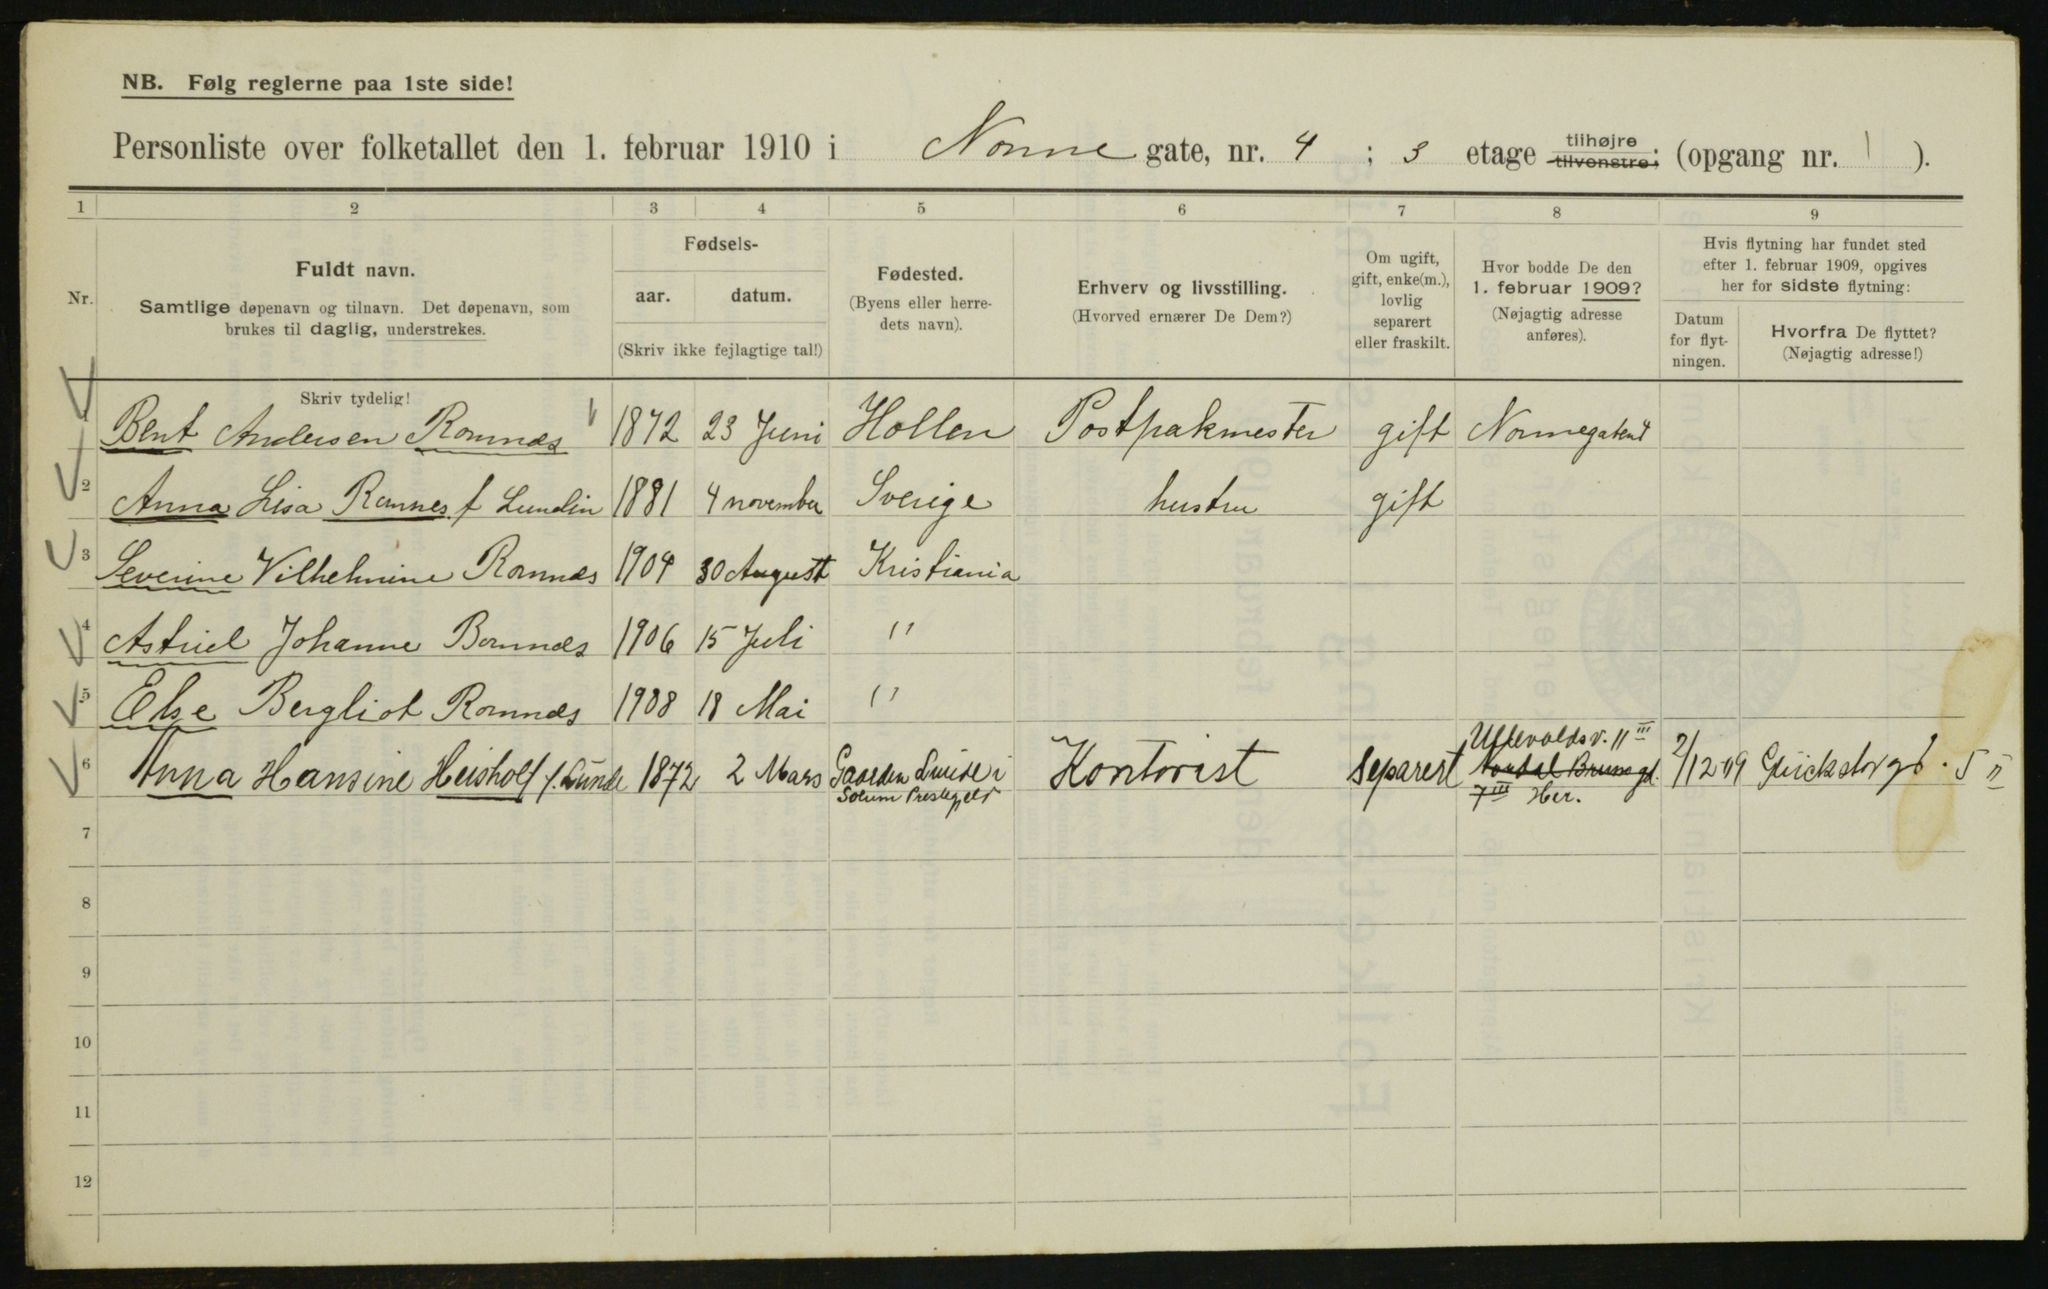 NB. Følg reglerne paa 1ste side!
Personliste over folketallet den 1. februar 1910 i Nonne gate, nr. 4 ; 3 etage tilhøjre tilvenstre; (opgang nr. 1 ).
1 2 3 4 5 6 7 8 9
Nr.
Fuldt navn.
Samtlige døpenavn og tilnavn. Det døpenavn, som
brukes til daglig, understrekes.
Fødsels-
aar. datum.
(Skriv ikke fejlagtige tal!)
Fødested.
(Byens eller herre-
dets navn).
Erhverv og livsstilling.
(Hvorved ernærer De Dem?)
Om ugift,
gift, enke(m.),
lovlig
separert
eller fraskilt.
Hvor bodde De den
1. februar 1909?
(Nøjagtig adresse
anføres).
Hvis flytning har fundet sted
efter 1. februar 1909, opgives
her for sidste flytning:
Datum
for flyt-
ningen.
Hvorfra De flyttet?
(Nøjagtig adresse!)
Skriv tydelig!
1 Bent Andersen Romnæs 1872 23 Juni Hollen Postpakmester gift Nonnegaten 4
2 Anna Lisa Romnes f Lundin 1881 4 november Sverige hustru gift
3 Severine Vilhelmine Romnæs 1904 30 August Kristiania
4 Astrid Johanne Romnæs 1906 15 Juli "
5 Else Bergliot Romnæs 1908 18 Mai "
6 Anna Hansine Heisholt f. Lunde 1872 2 Mars Gaarden Lunde i Solum Prestegjeld Kontorist separert Ullevoldsv. 11 III Nordal Brunsgd. 7 III Her. 2/12 09 Glückstorgt. 5 II
7
8
9
10
11
12